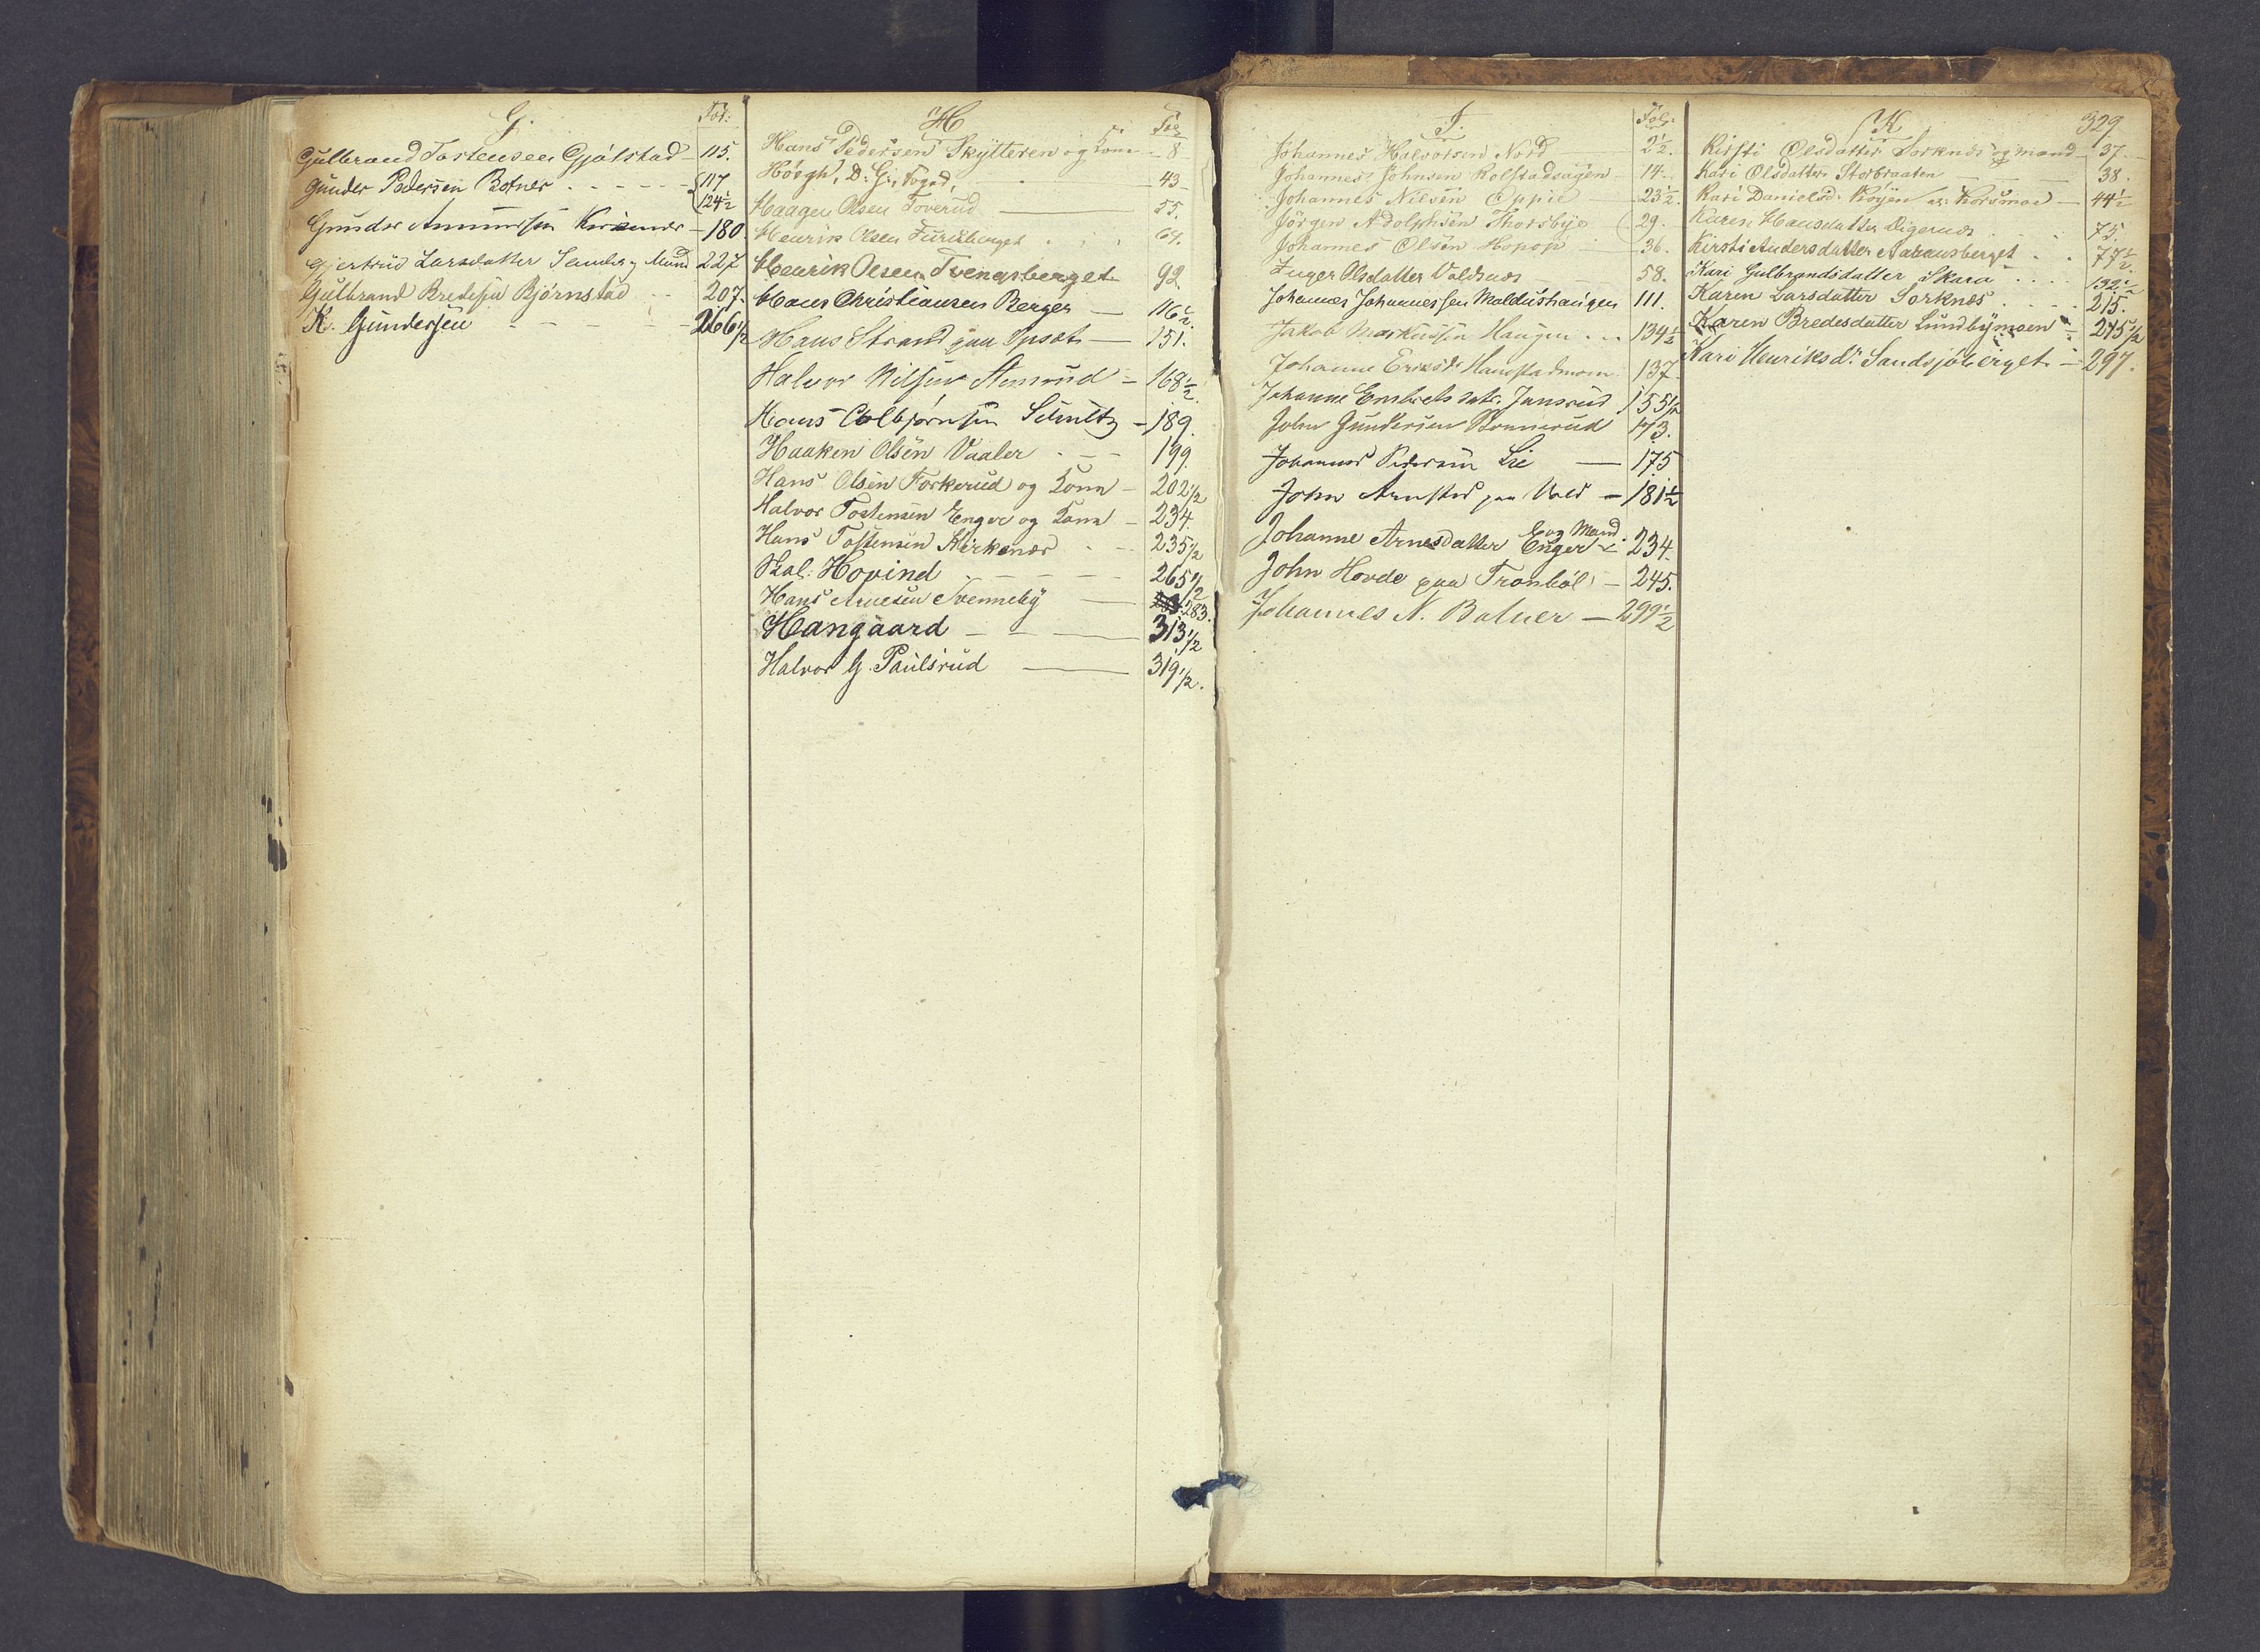 G. Fol:
Gulbrand Tostensen Gjølstad - 115.
Gunder Pedersen Rotner - - - - - 117
124½
Gunder Amundsen Kirkenær - 180.
Gjertrud Larsdatter Sander og Mand 227
Gulbrand Bredesen Bjørnstad - - 207.
K. Gundersen - - - - - 266½
H Fol
Hans Pedersen Skytteren og Kone - 8
Høegh, D: G:, Foged, 43
Haagen Olsen Toverud 55.
Henrik Olsen Furuberget . . . 64.
Henrik Olesen Tvengsberget 92
Hans Christiansen Berger — 116½.
Hans Strand paa Opset — 151.
Halvor Nilsen Aamrud - 168½
Hans Colbjørnsen Schultz - 189.
Haaken Olsen Vaaler . - - 199.
Hans Olsen Forkerud og Kone - 202½
Halvor Tostensen Enger og Kone - 234.
Hans Tostensen Kirkenær - - 235½
Hovind - - - - 265½
Hans Arnesen Svenneby — 283.
Hangaard - - — 313½
Halvor G. Paulsrud — 319½.
I. Fol:
Johannes Halvorsen Nord 2½.
Johannes Johnsen Rolstadsagen 14.
Johannes Nilsen Oppie 23½.
Jørgen Adolphsen Thorsbye 29.
Johannes Olsen Hopop 36.
Inger Olsdatter Valdnæs 58.
Johannes Johannessen Maldushaugen 111.
Jakob Markussen Haugen . . . 134½
Johanne Eriksdr Haustadmoen 137.
Johanne Embretsdatr. Jansrud 155½
John Gundersen Brunnerud 173.
Johannes Pedersen Lie — 175
John Arnstad paa Vold - 181½
Johanne Arnesdatter Enger og Mand. 234.
John Hovde paa Tronbøl - 245.
Johannes N. Bolner — 299½
K 329
Kirsti Olsdatter Sorknæs og Mand 37.
Kari Olsdatter Storbraaten 38.
Kari Danielsd. Røyen Korsmoe — 44½
Karen Hansdatter Digernæs . . . 75.
Kirsti Andersdatter Aaransberget . . 77½.
Kari Gulbrandsdatter Skara . . . . 132½
Karen Larsdatter Sorknæs . . . . 215.
Karen Bredesdatter Lundbymoen - 275½
Kari Henriksdr. Sandsjøberget - 297.